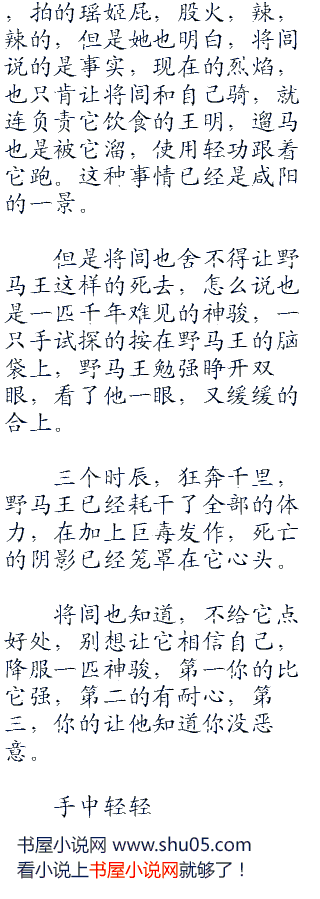 ，拍的瑶姬屁，股火，辣，
辣的，但是她也明白，将闾
说的是事实，现在的烈焰，
也只肯让将闾和自己骑，就
连负责它饮食的王明，遛马
也是被它溜，使用轻功跟着
它跑。这种事情已经是咸阳
的一景。
但是将闾也舍不得让野
马王这样的死去，怎么说也
是一匹千年难见的神骏，一
只手试探的按在野马王的脑
袋上，野马王勉强睁开双
眼，看了他一眼，又缓缓的
合上。
三个时辰，狂奔千里，
野马王已经耗干了全部的体
力，在加上巨毒发作，死亡
的阴影已经笼罩在它心头。
将闾也知道，不给它点
好处，别想让它相信自己，
降服一匹神骏，第一你的比
它强，第二的有耐心，第
三，你的让他知道你没恶
意。
手中轻轻
书屋小说网 www.shu05.com
看小说上书屋小说网就够了！